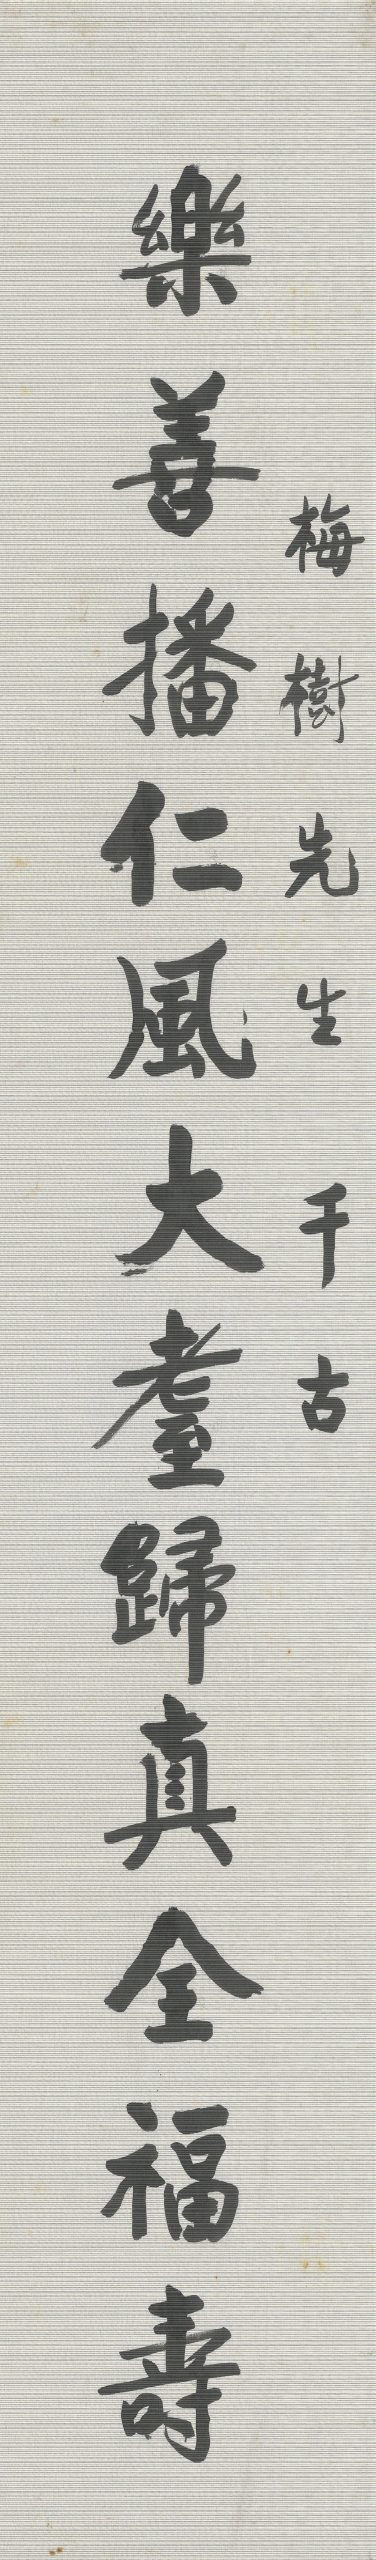 梅樹先生千古
樂善播仁風大耋歸真全福壽